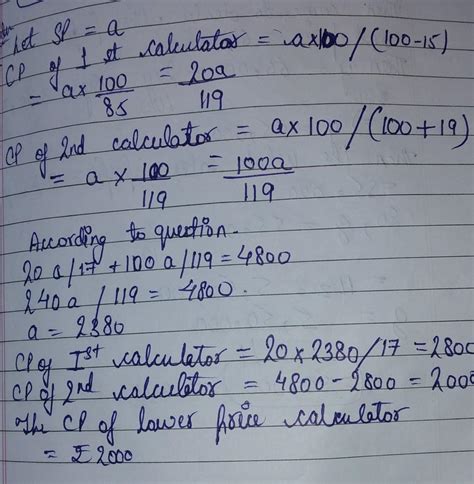 Let SP = a
CP of 1 st calculator = a×100/(100-15)
= a× 100/85 = 20a/119
CP of 2nd calculator = a×100/(100+19)
= a × 100/119 = 100a/119
According to question.
20 a/17 + 100 a/119 = 4800
240a /119 = 4800.
a = 2380
CP of Ist calculator = 20×2380/17 = 2800
CP of 2nd calculator = 4800-2800 = 2000
The CP of lower price calculator
= ₹2000